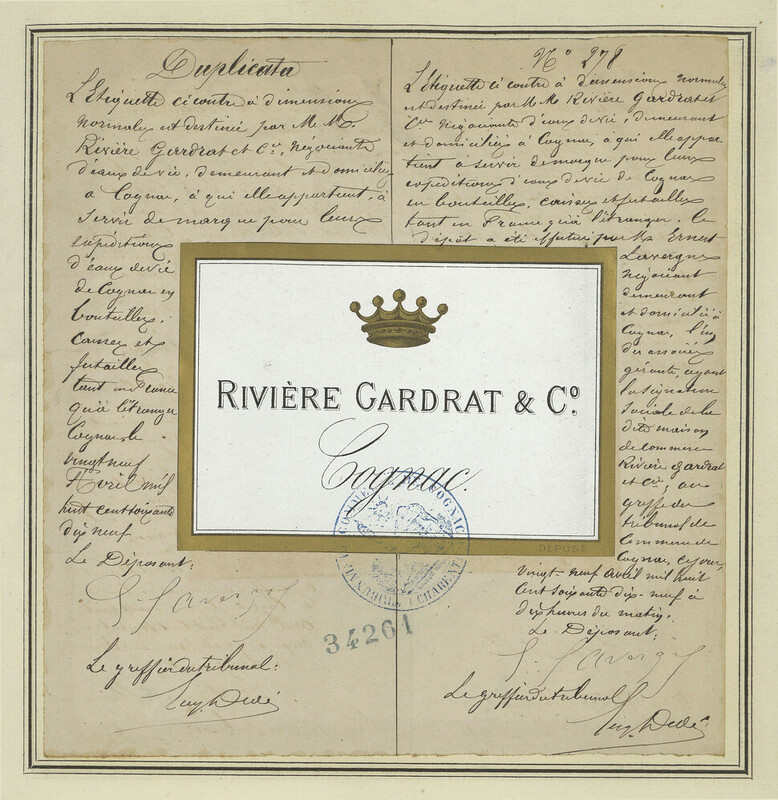 Duplicata
L'Etiquette ci contre à dimensions
normales est destinée par M M.
Rivière Gardrat et Cie, négociants
d'eaux de vie, demeurant et domiciliés
a Cognac, à qui elle appartient, à
servir de marque pour leurs
expéditions
d'eaux de vie
de Cognac en
bouteilles,
caisses et
futailles
tant en France
qu'à l'étranger
Cognac, le
vingt neuf
Avril mil
huit cent soixante
dix neuf
Le Déposant:
E. Lavergne
Le greffier du tribunal:
Eug. Dedé
No 278
L'Etiquette ci contre à dimensions normales
est destinée par M M. Rivière Gardrat et
Cie négociants d'eaux de vie, demeurant
et domiciliés à Cognac, à qui elle appar
tient à servir de marque pour leurs
expéditions d'eaux de vie de Cognac
en bouteilles, caisses et futailles
tant en France qu'à l'étranger. Ce
dépôt a été effectué par Mr Ernest
Lavergne
négociant
demeurant
et domicilié à
Cognac, l'un
des associés
gérants, ayant
la signature
sociale de la
dite maison
de commerce
Rivière Gardrat
et Cie, au
greffe du
tribunal de
Commerce de
Cognac, ce jour,
vingt-neuf avril mil huit
cent soixante dix-neuf à
dix heures du matin.
Le Déposant:
E. Lavergne
Le greffier du tribunal
Eug. Dedé
RIVIÈRE GARDRAT & Co.
Cognac.
DÉPOSÉ
COGNAC
CHARENTE
34261